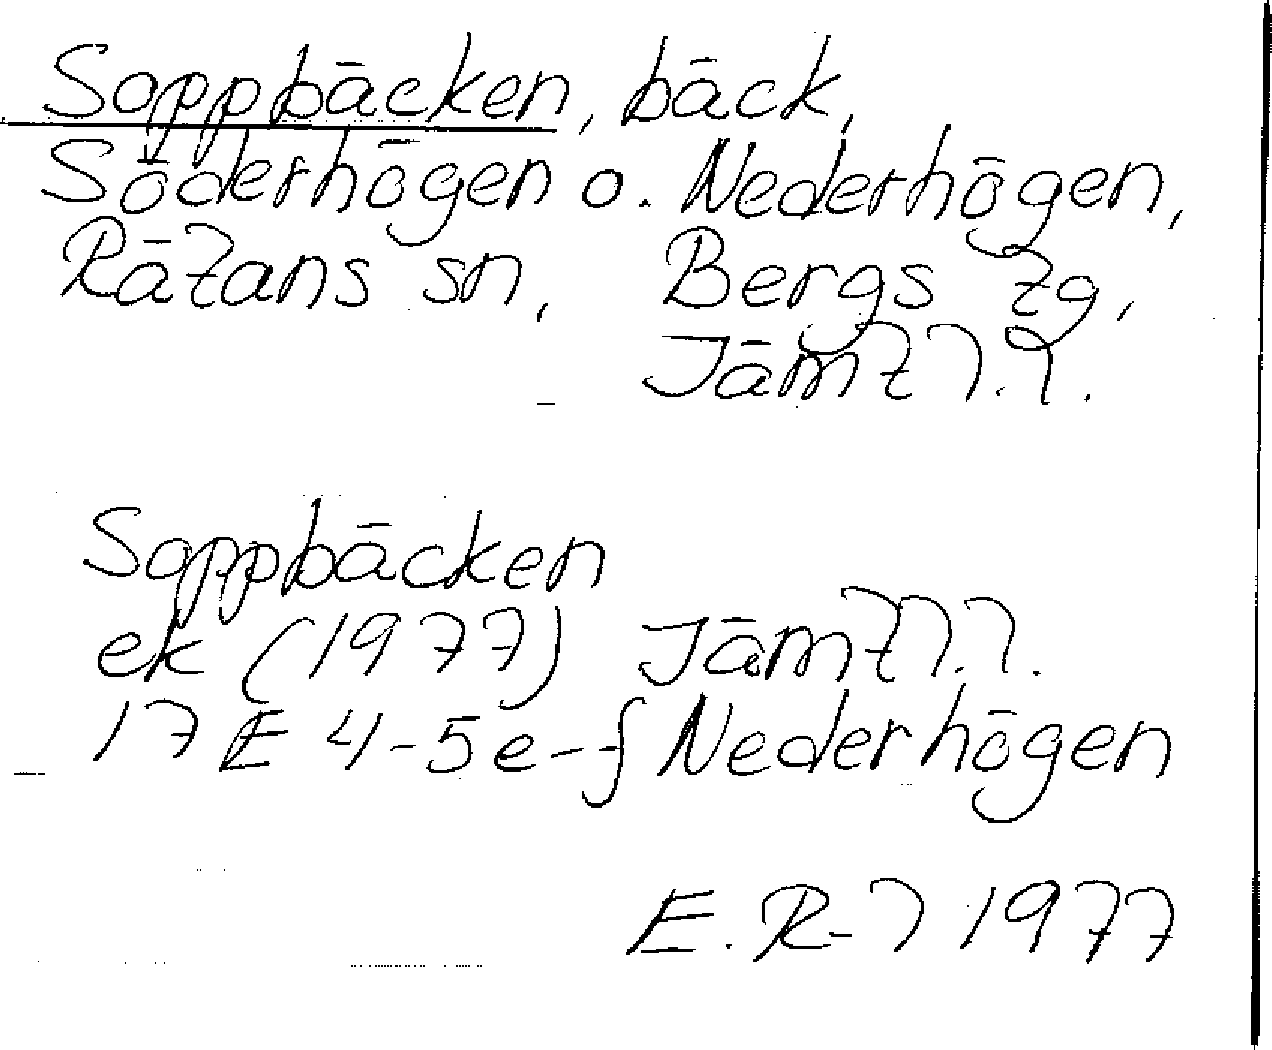 Sappbäcken, bäck,
Söderhögen o. Nederhögen,
Rätans sn, Bergs tg,
Jämtl.l.
Sappbäcken
ek (1977) Jämtl.l.
17E 4-5e-f Nederhögen
E.R-l 1977